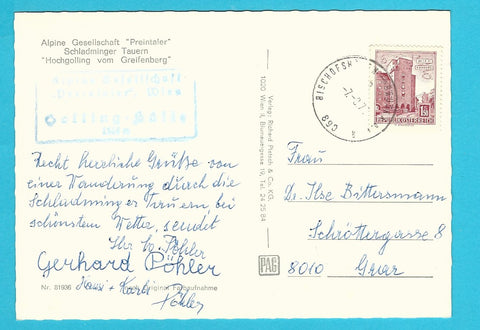 Alpine Gesellschaft "Preintaler"
Schladminger Tauern
"Hochgolling vom Greifenberg"
Alpine Gesellschaft
"Preintaler", Wien
Golling-Hütte
Recht herzliche Grüße von
einer Wanderung durch die
Schladminger Tauern bei
schönstem Wetter, sendet
Ihr
Pöhler
Gerhard Pöhler
Hansi + Karli
Pöhler
Nr. 81936
Original Farbaufnahme
Verlag: Richard Pietsch & Co. KG.
1020 Wien II, Blumauergasse 19, Tel. 24 25 84
PAG
BISCHOFSH
REPUBLIK ÖSTERREICH
Frau
Dr. Ilse Bittersmann
Schröttergasse 8
8010 Graz